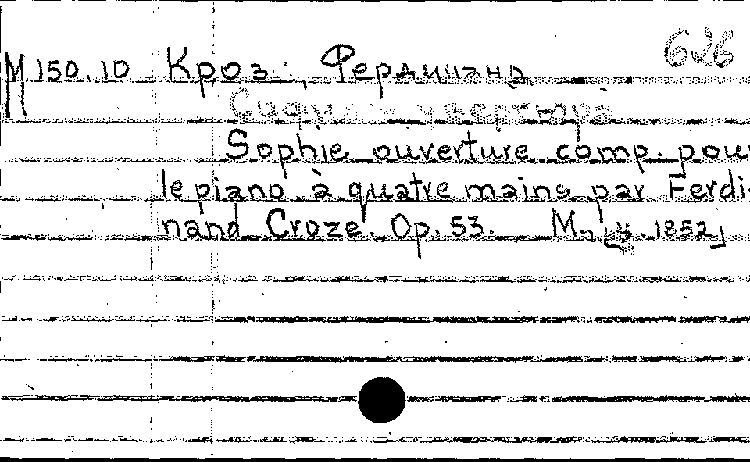 626
М 150.10 Кроз, Фердинанд
увертюра
Sophie ouverture comp. pour
le piano à quatre mains par Ferdi-
nand Croze. Op. 53. М., 1852